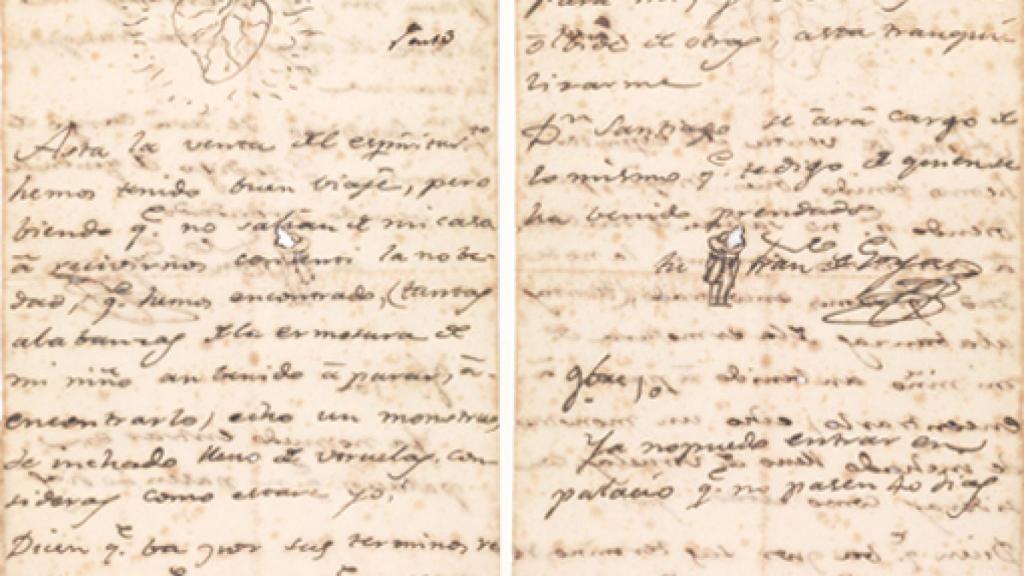 Asta la venta del espiritusto
hemos tenido buen viaje, pero
biendo q.e no salian de mi casa
à recivirnos la nobe-
dad, q.e hemos encontrado, (tantas
alabanzas de la ermosura de
mi niño an benido à parar, à
encontrarlo) echo un monstruo,
de inchado lleno de viruelas, con
sideras como estare yo;
Dicen q.e ba por sus terminos
olbide de otras, asta tranqui
lizarme
D.n Santiago se àrà cargo de
lo mismo q.e te digo de quien se
ha benido prendado
tu Fran.co de Goya
Ya no puedo entrar en
palacio q.e no pasen 40 dias